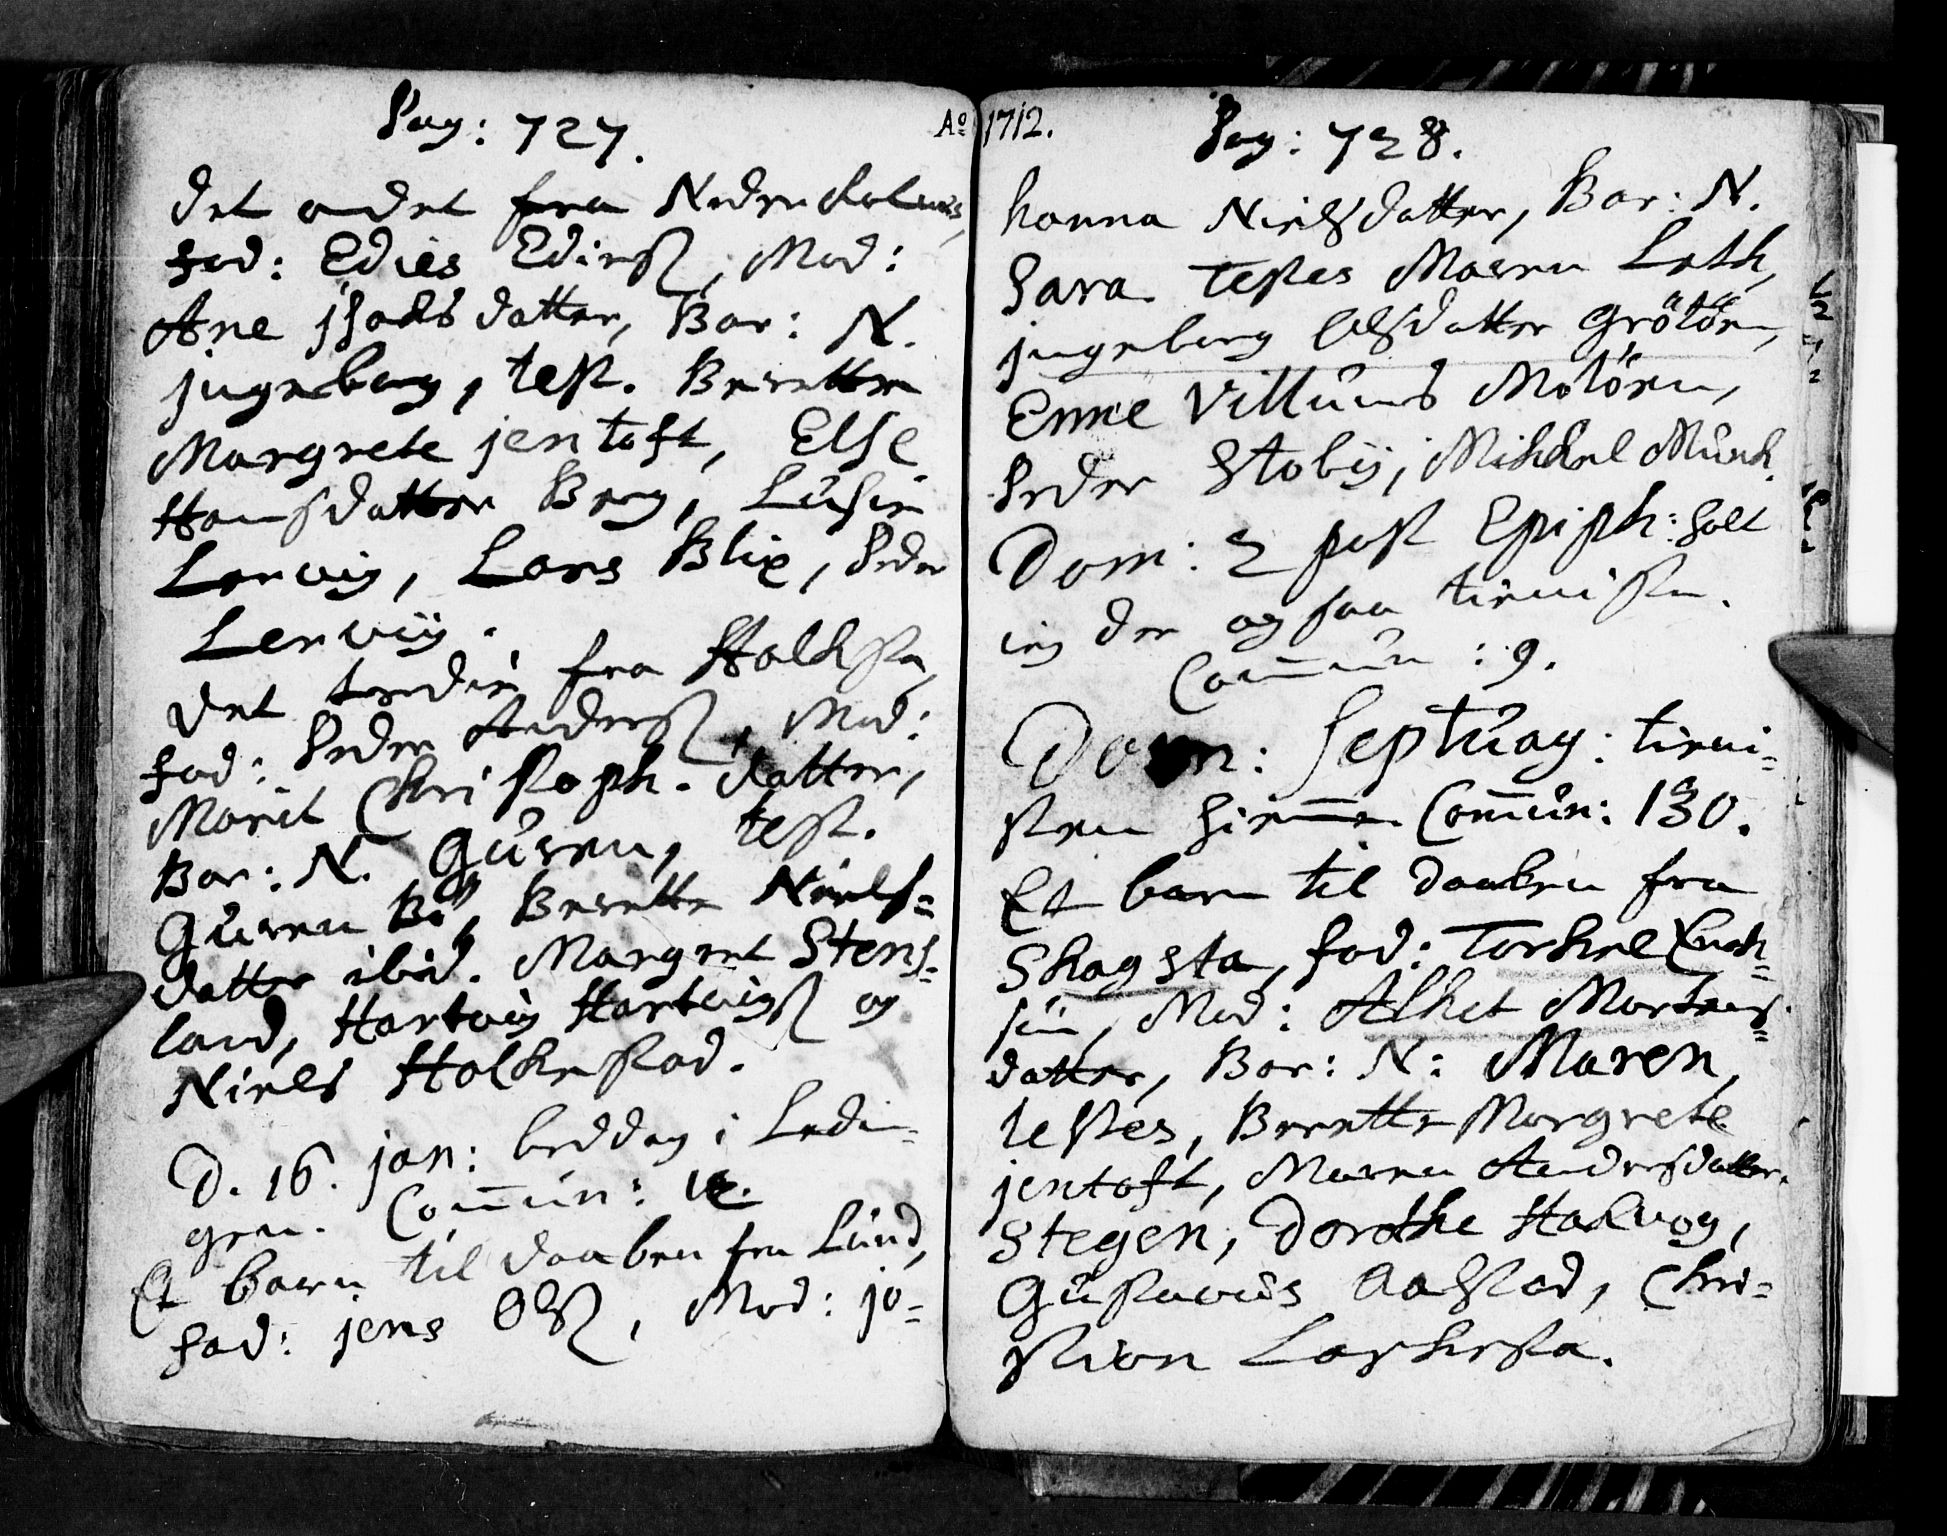 Pag: 727.
det andet fra Neder
Fad: Edies Ediesß, Mod:
Ane jsachs datter, Bar: N.
jngeborg, test. Berette
Margrete jentoft, Else
Hansdatter Berg, Lusie
Lervig, Lars Blix, Peder
Lerviig.
Det tredie fra Holksta,
Fad: Peder Andersß, Mod:
Marit Christoph. datter,
Bar: N. Guren, test.
Guren Bö, Berette Niels=
datter ibid. Margret Stens=
land, Hartvig Hartvigß og
Niels Holkestad.
D. 16. jan: beddag i Ledin=
gen. Commun:
Et barn til daaben fra Lund,
Fad: jens Olß, Mod: jo=
Ao 1712.
Pag: 728.
hanna Nielsdatter, Bar: N.
Sara. Testes Maren Leth,
jngeborg Olsdatter Grötöen,
Enne Villums Molöen,
Peder Stobij, Mikkel Munk.
Dom: 2 post Epiph: holt
ieg der og saa tienisten.
Commun: 9.
Dom: Septuag: tieni=
sten hiemme. Commun: 130.
Et barn til daaben fra
Skagsta, Fad: Torkel
Mod: Alhet Mortens=
datter, Bar: N: Maren,
testes, Berette Margrete
jentoft, Maren Andersdatter.
Stegen, Dorothe Halvog,
Gustavus Aastad, Chri=
stian Laskesta.